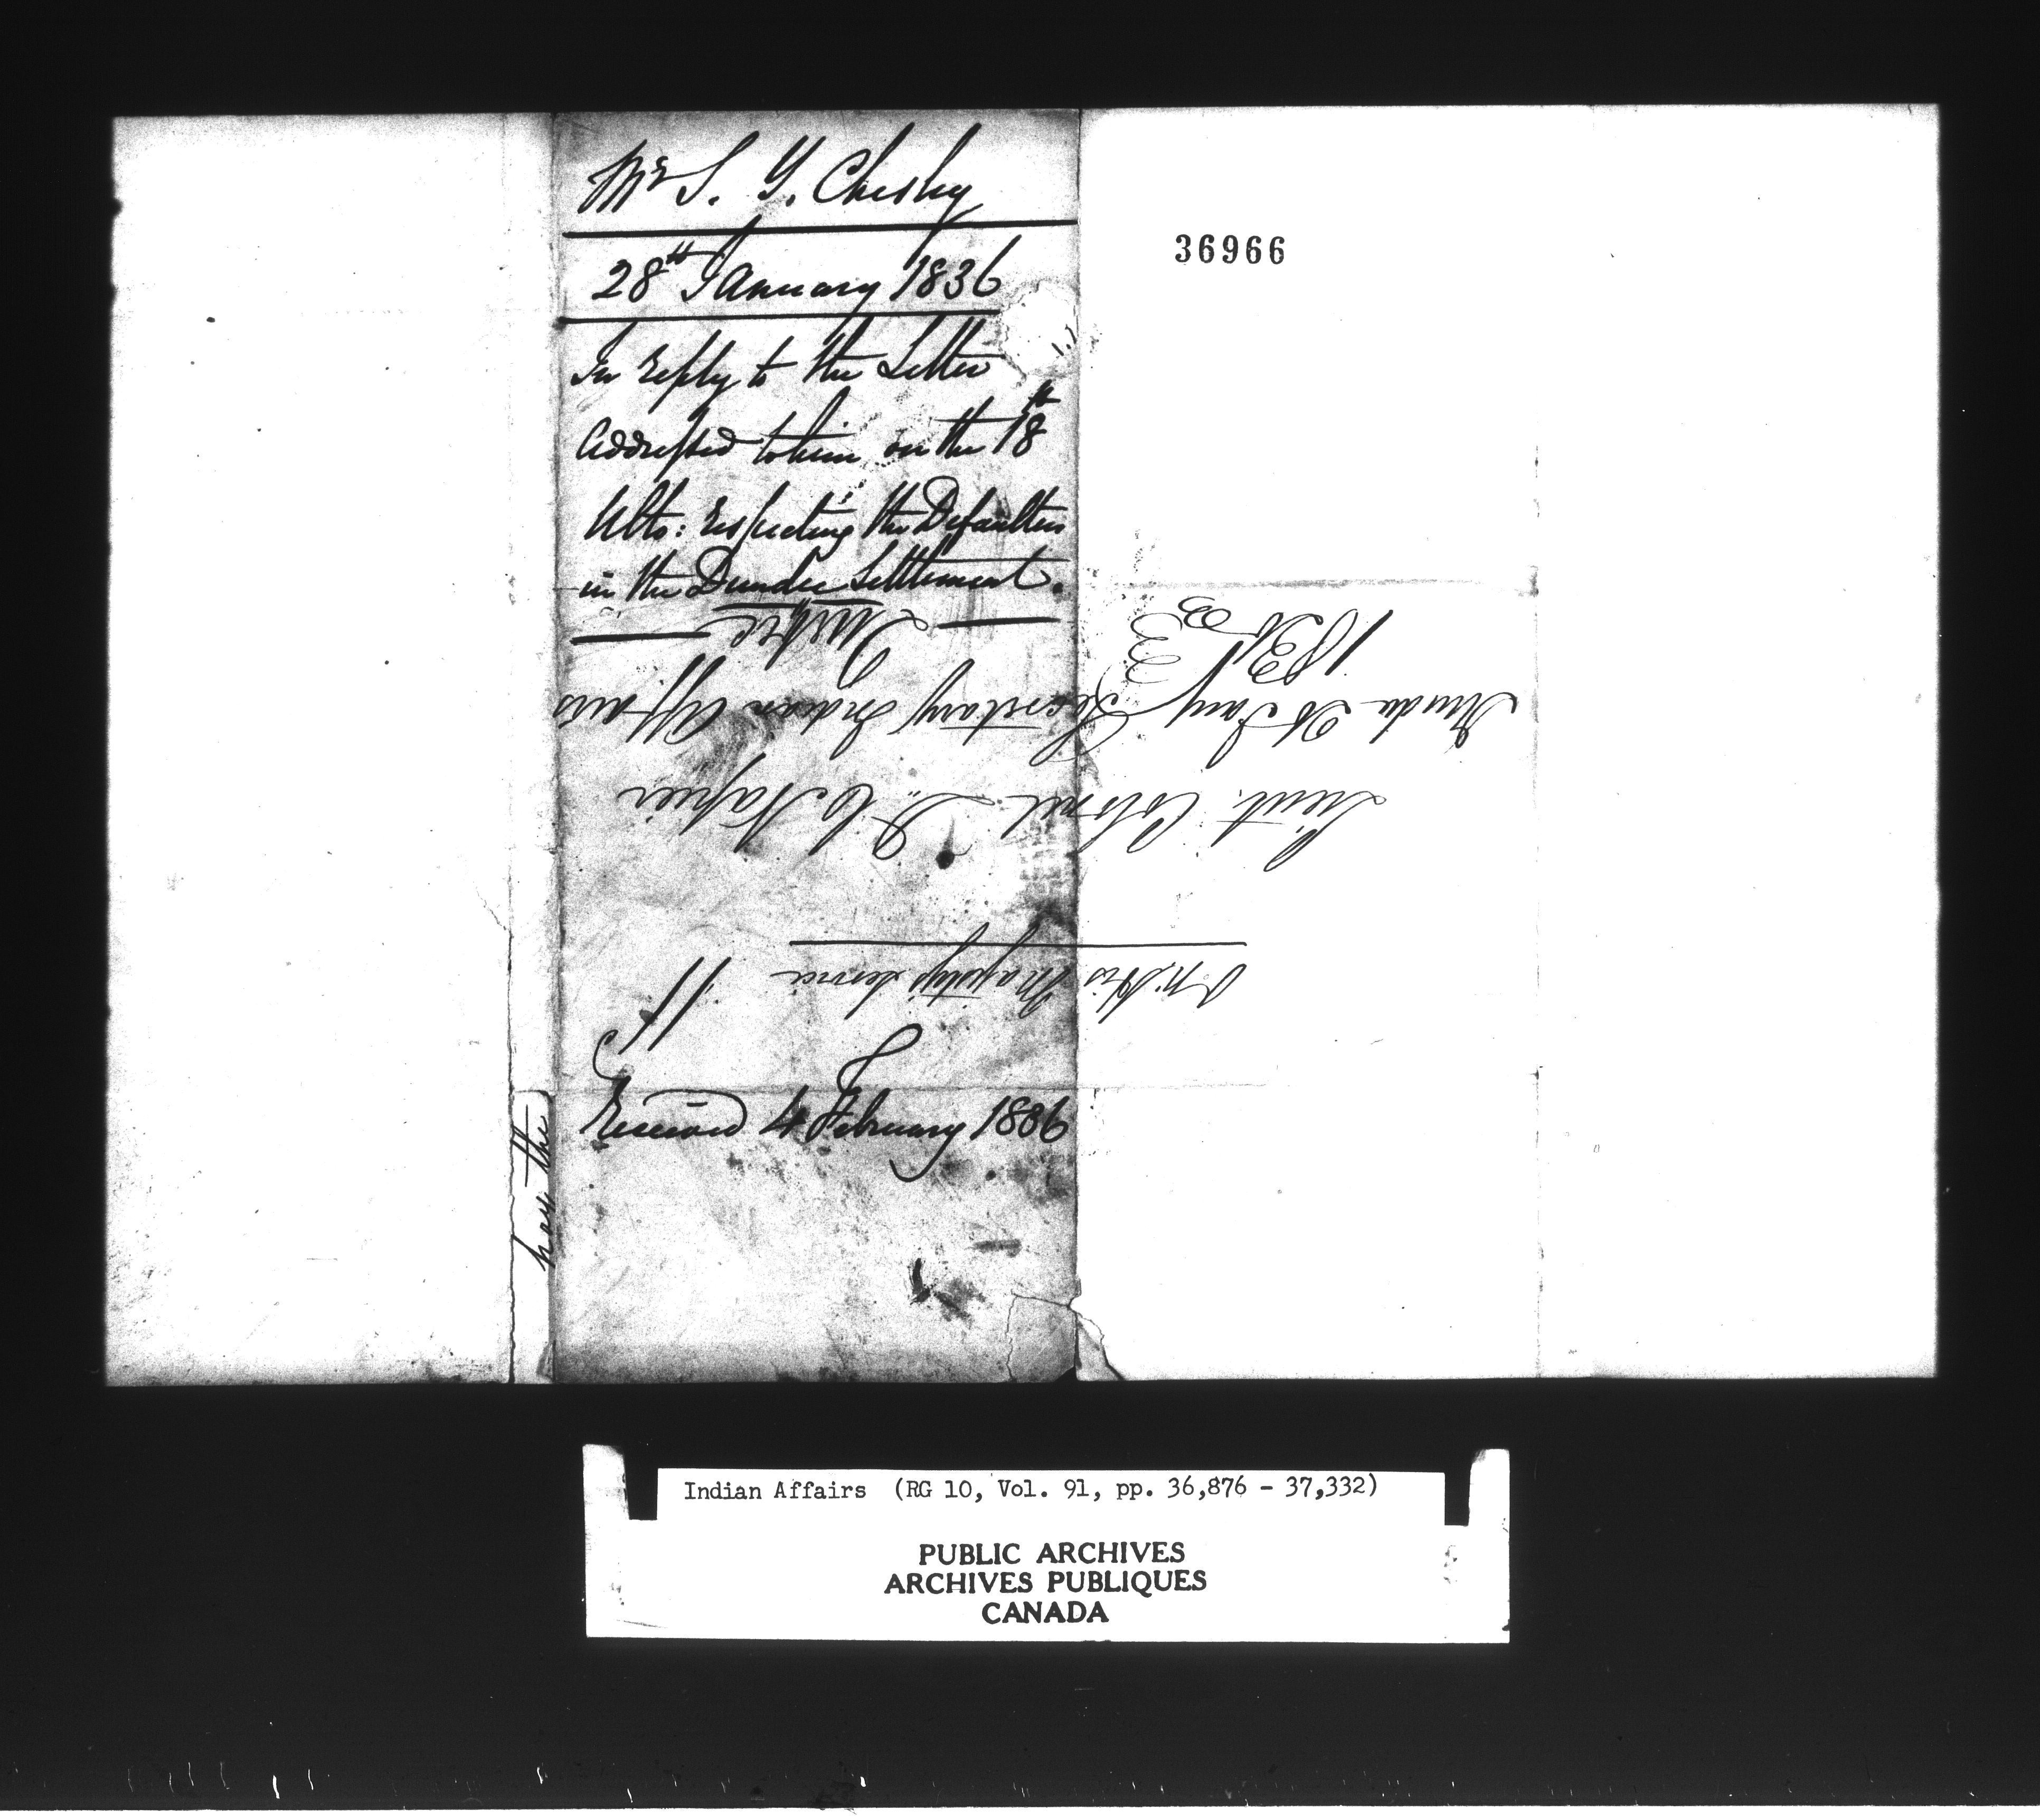 Mr S. Y. Chesley
28th January 1836
In reply to the Letter
addressed to him on the 18th
Ulto: respecting the Defaulters
in the Dundee Settlement.
36966
On His Majesty's Service
Lieut: Colonel D. C. Napier
Secretary Indian Affairs
Quebec
Jany
1836
Received 4 February 1836
pay the
Indian Affairs (RG 10, Vol. 91, pp. 36,876 - 37,332)
PUBLIC ARCHIVES
ARCHIVES PUBLIQUES
CANADA